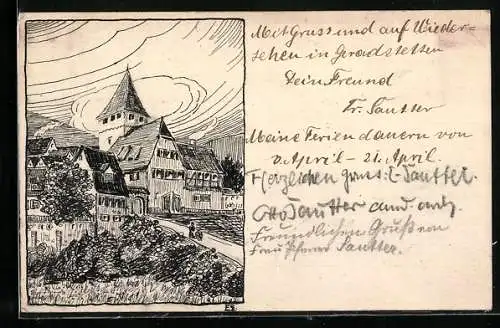 Mit Gruss und auf Wieder-
sehen in Gradstetten
Dein Freund
Fr. Sautter
Meine Ferien dauern von
April – 21. April.
Herzlichen Gruss: E. Sautter.
Otto Sautter cand.
Freundlichen Gruß von
Frau Pfarrer Sautter.